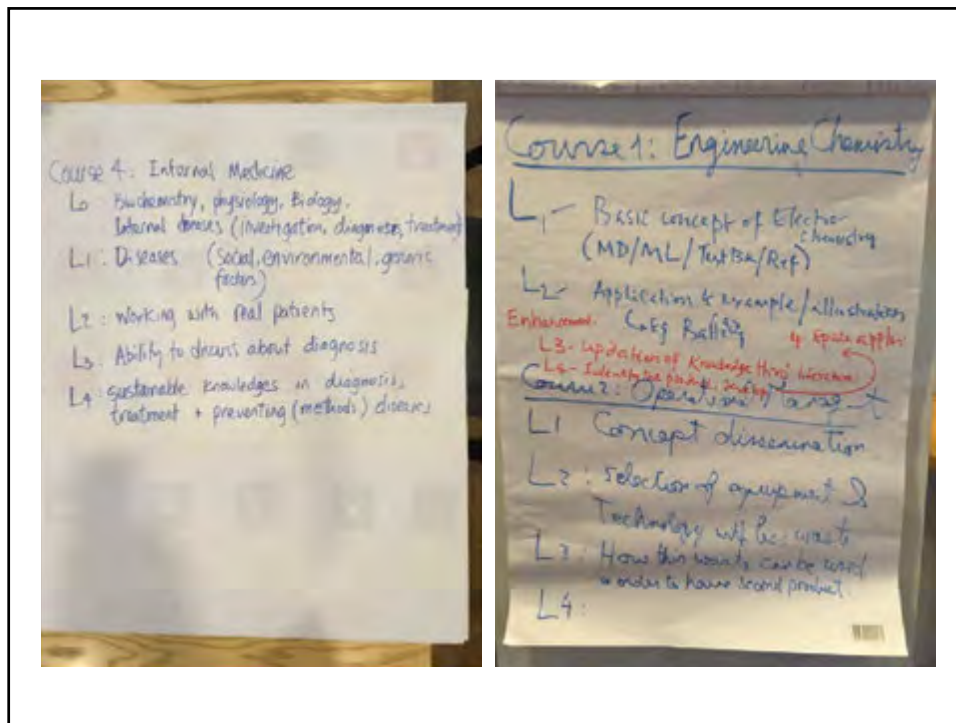 Course 4: Internal Medicine
L0 Biochemistry, physiology, Biology,
Internal (investigation, diagnosis, treatment)
L1: Diseases (Social, environmental, genetic
factors)
L2: Working with real patients
L3: Ability to discuss about diagnosis
L4: sustainable knowledges in diagnosis,
treatment + preventing (methods) diseases
Course 1: Engineering Chemistry
L1- Basic concept of Electro
chemistry
(MD/ML/Text Bk/Ref)
L2- Application & example/illustration
Enhancement: Eg Battery
L3- Updation of Knowledge literature
L4- product
Course 2:
L1 Concept dissemination
L2: Selection of equipment &
Technology waste
L3: How this waste can be used
in order to have second product
L4: